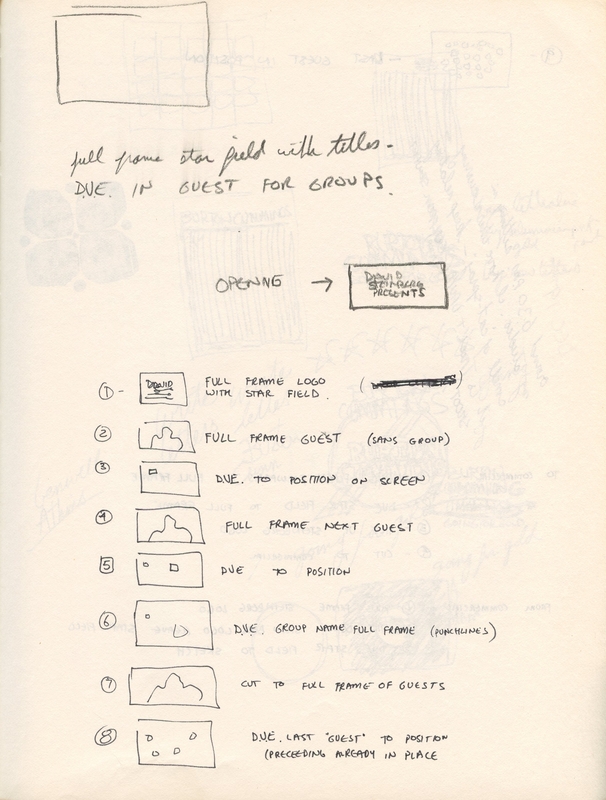 full frame star field with titles -
D.V.E. IN GUEST FOR GROUPS.
OPENING →
DAVID
STEINBERG
PRESENTS
① - DAVID FULL FRAME LOGO
WITH STAR FIELD. ( )
② FULL FRAME GUEST (SANS GROUP)
③ D.V.E. TO POSITION ON SCREEN
④ FULL FRAME NEXT GUEST
5 DVE TO POSITION
⑥ D.V.E. GROUP NAME FULL FRAME (PUNCHLINES)
⑦ CUT TO FULL FRAME OF GUESTS
⑧ D.V.E. LAST "GUEST" TO POSITION
(PRECEEDING ALREADY IN PLACE